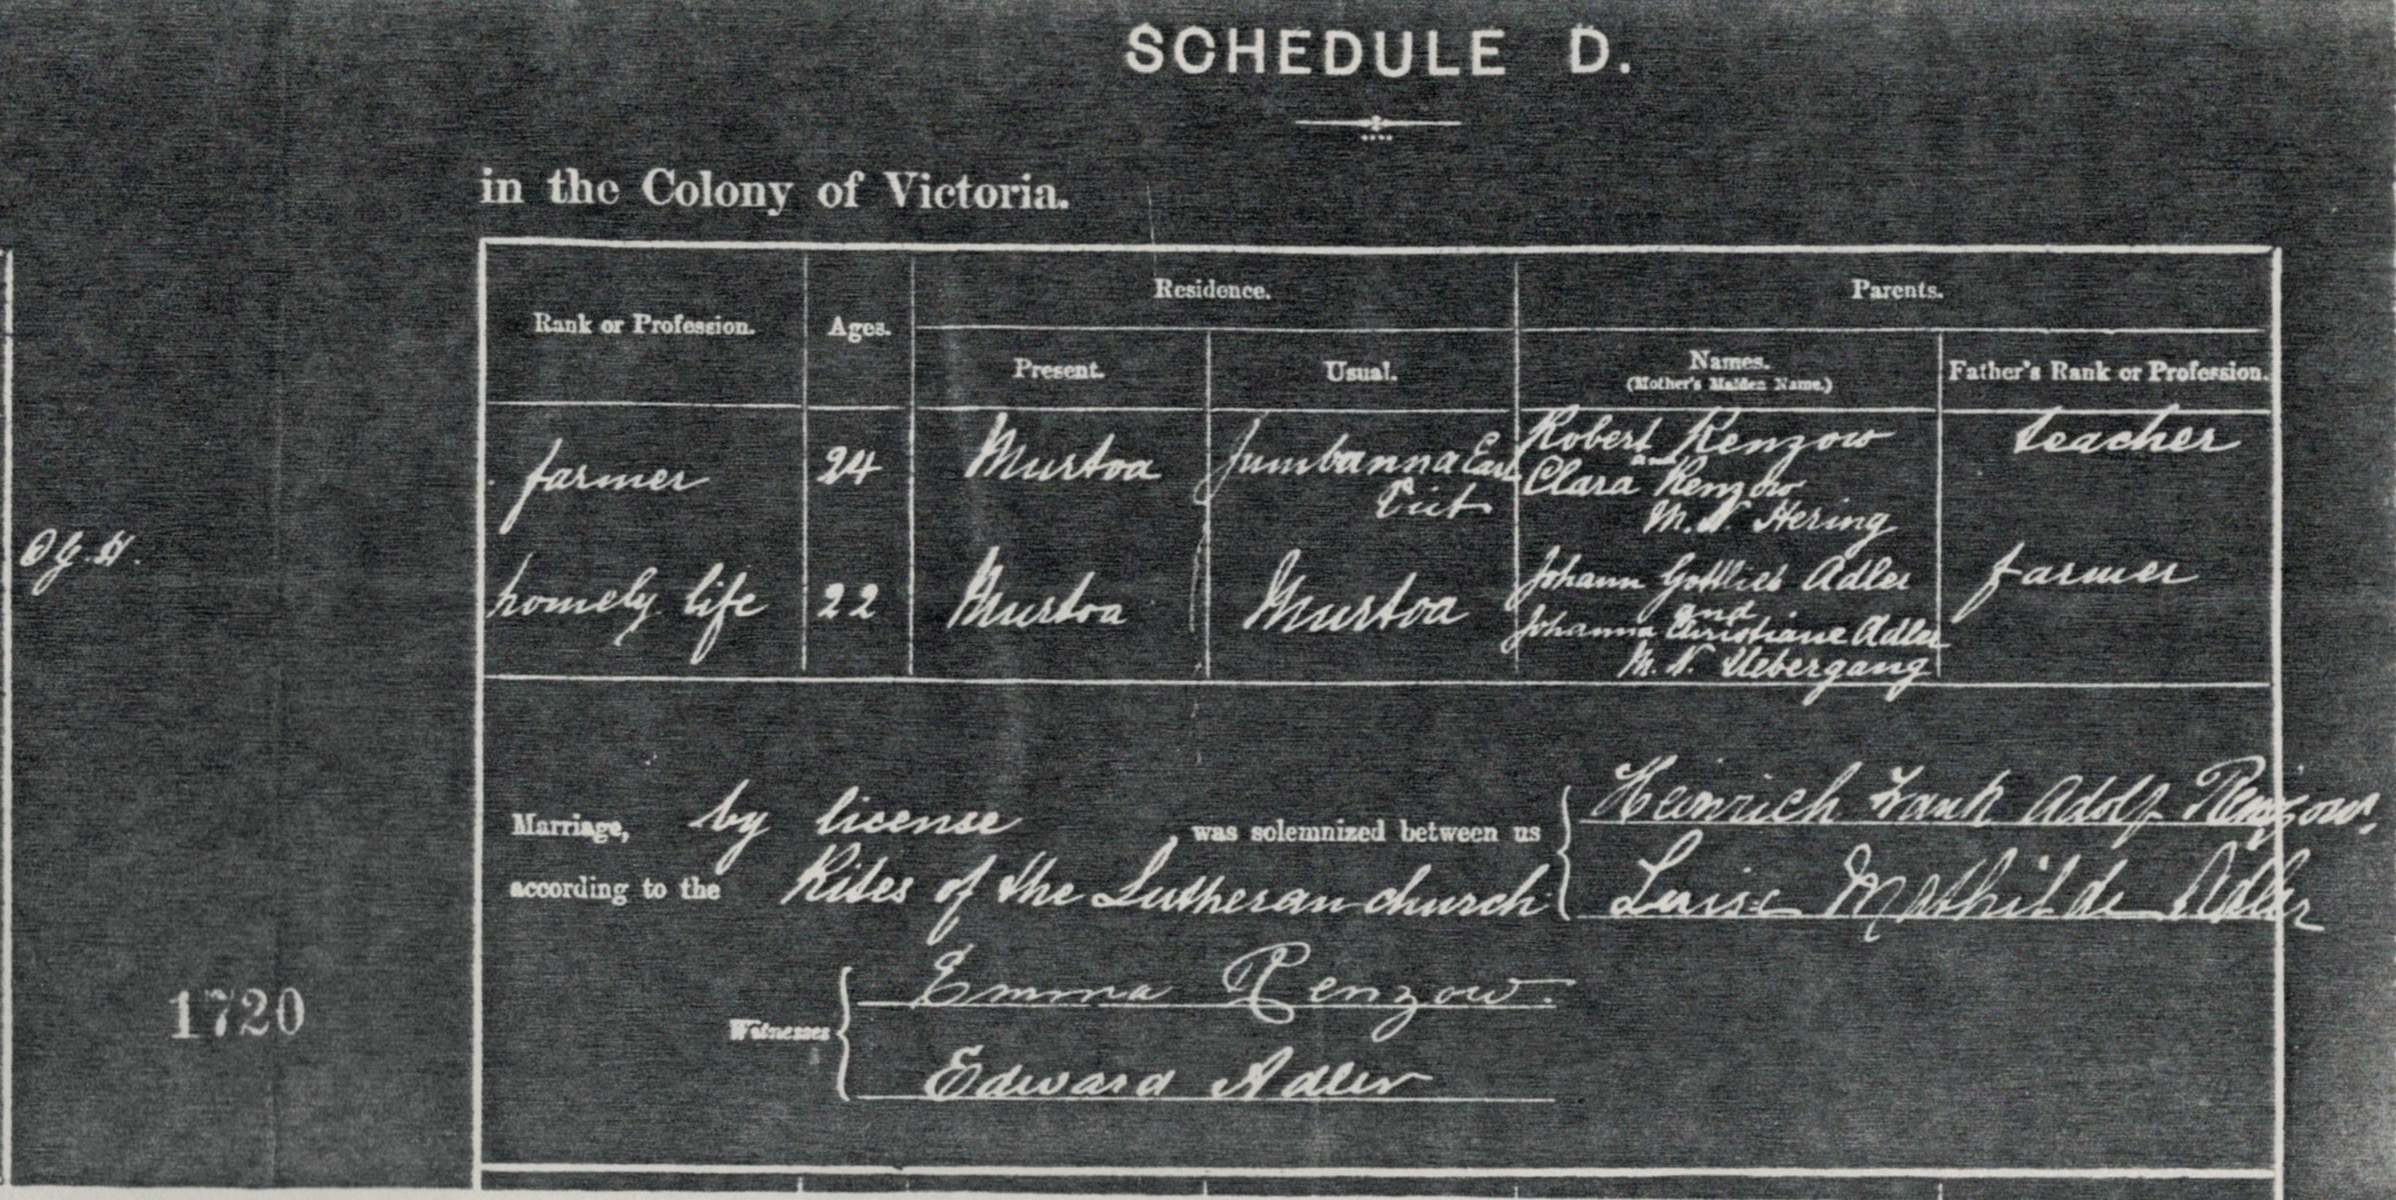 SCHEDULE D.
in the Colony of Victoria.
Rank or Profession. Ages. Residence. Parents.
Present. Usual. Names. Father's Rank or Profession.
(Mother's Maiden Name.)
farmer 24 Murtoa Jumbanna East Robert Renzow teacher
Vict and
Clara Renzow
M. N. Hering
homely life 22 Murtoa Murtoa Johann Gottlieb Adler farmer
and
Johanna Christiane Adler
M. N. Uebergang
Marriage, by license was solemnized between us Heinrich Frank Adolf Renzow.
according to the Rites of the Lutheran church Luise Mathilde Adler
Witnesses Emma Renzow.
Edward Adler
1720